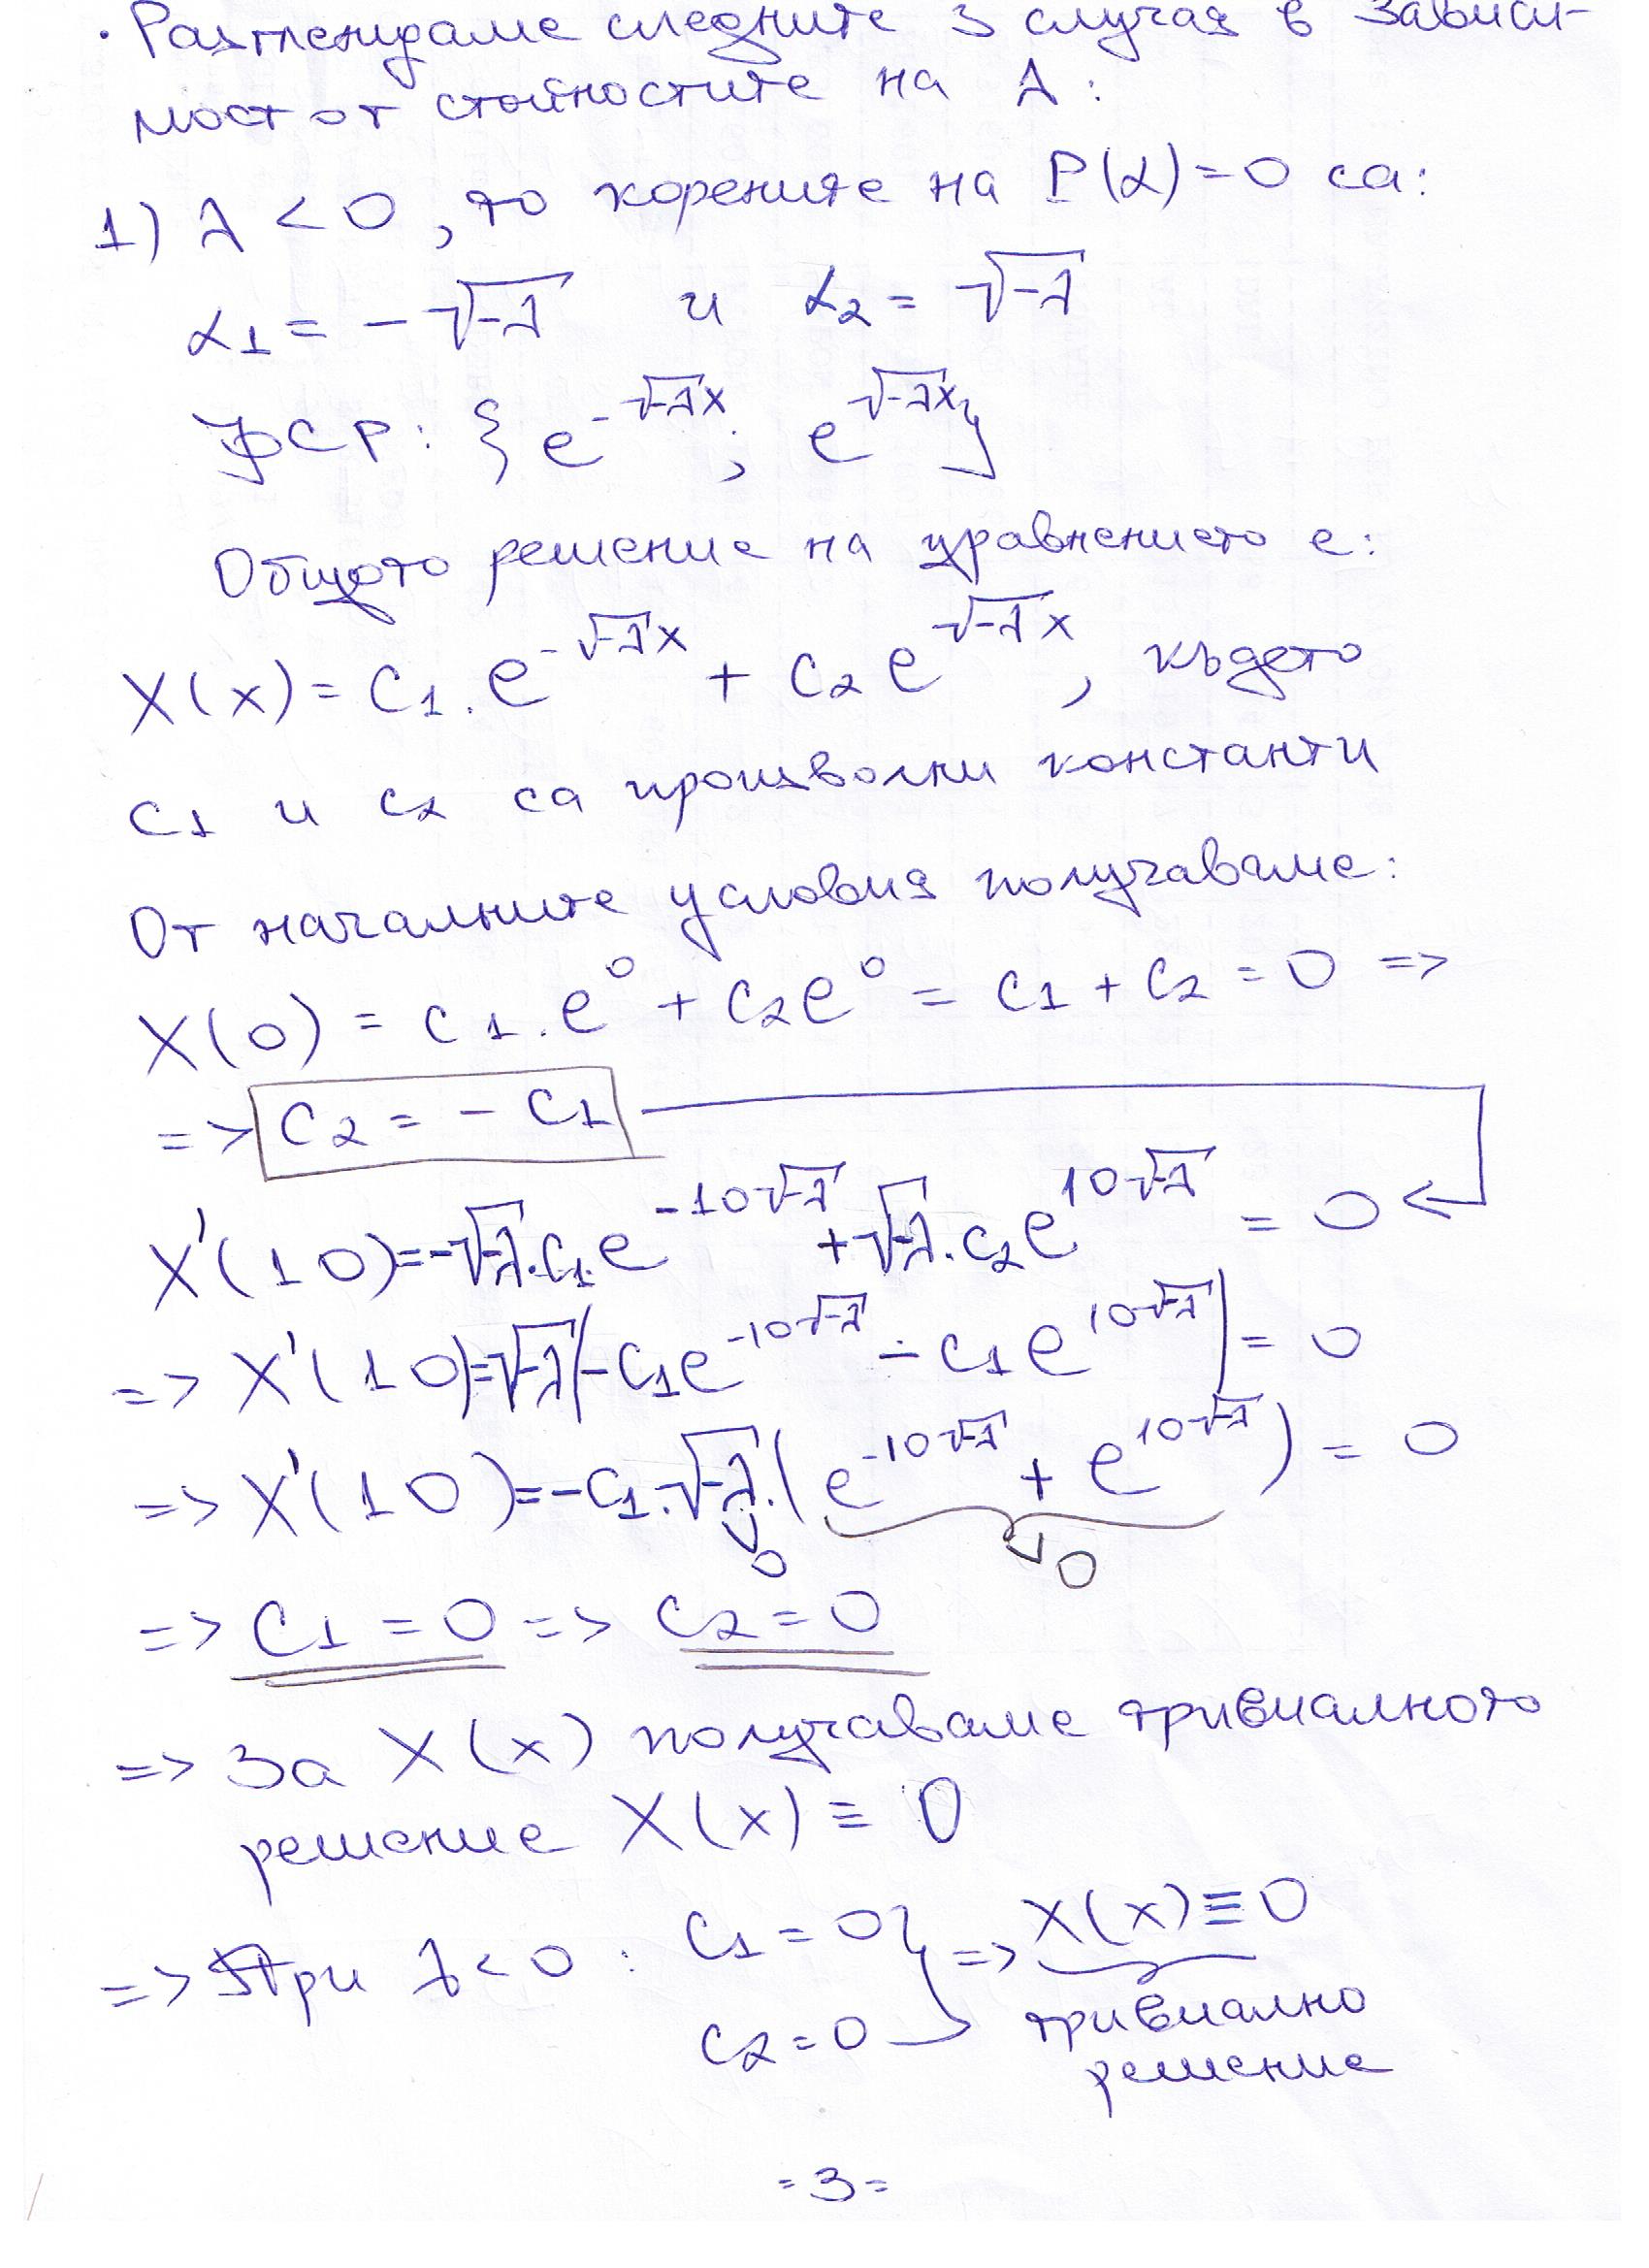 · Разглеждаме следните 3 случая в зависи-
мост от стойностите на λ:
1) λ < 0, то корените на P(α)=0 са:
α1 = -√-λ и α2 = √-λ
ФСР: {e^(-√-λx); e^(√-λx)}
Общото решение на уравнението е:
X(x) = C1.e^(-√-λx) + C2 e^(√-λx), където
C1 и C2 са произволни константи
От началните условия получаваме:
X(0) = C1.e^0 + C2e^0 = C1 + C2 = 0 =>
=> C2 = - C1
X'(10)=-√-λ.C1.e^(-10√-λ) +√-λ.C2e^(10√-λ) = 0
=> X'(10)=√-λ(-C1e^(-10√-λ) - C1e^(10√-λ)) = 0
=> X'(10)=-C1.√-λ.(e^(-10√-λ) + e^(10√-λ)) = 0
>0 >0
=> C1 = 0 => C2 = 0
=> За X(x) получаваме тривиалното
решение X(x) ≡ 0
=> При λ<0 : C1 = 0 } => X(x) ≡ 0
C2 = 0 тривиално
решение
=3=